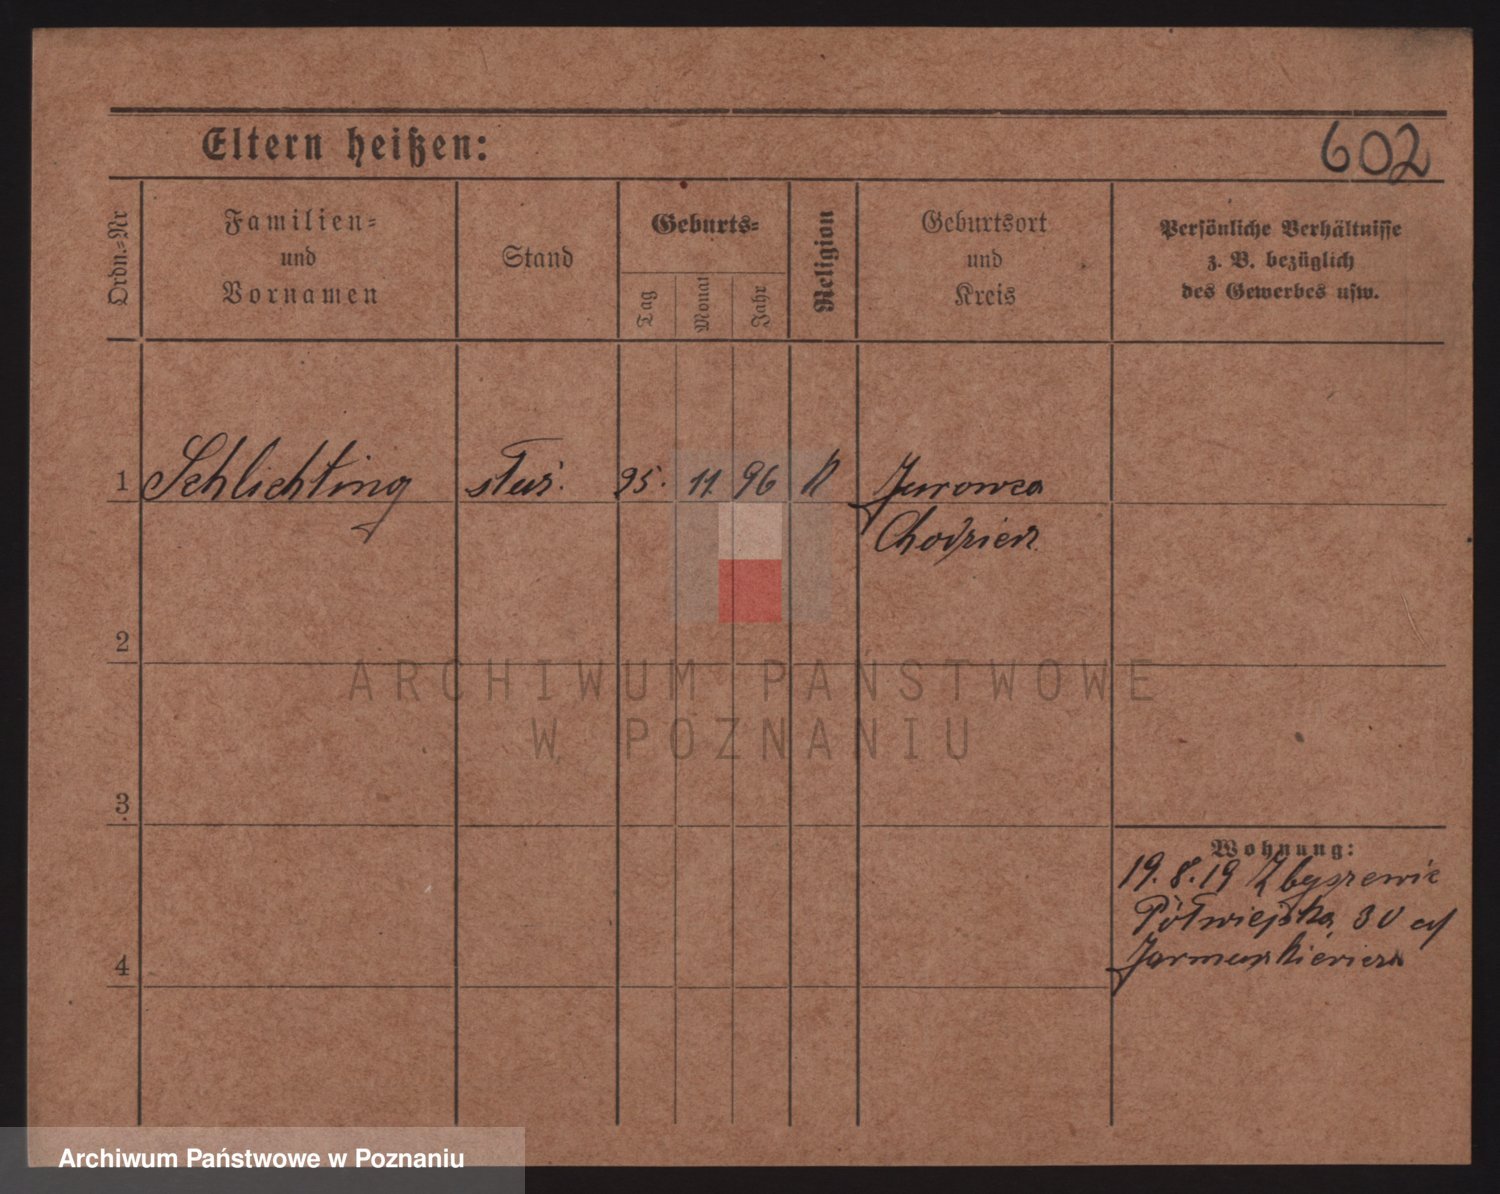 Eltern heißen:
602
Ordn.=Nr
Familien=
und
Vornamen
Stand
Geburts=
Tag
Monat
Jahr
Religion
Geburtsort
und
Kreis
Persönliche Verhältnisse
z. B. bezüglich
des Gewerbes usw.
1 Schlichting 25. 11 96 K
2
3
4
Wohnung:
19.8.19
Półwiejska 30
ARCHIWUM PAŃSTWOWE
W POZNANIU
Archiwum Państwowe w Poznaniu